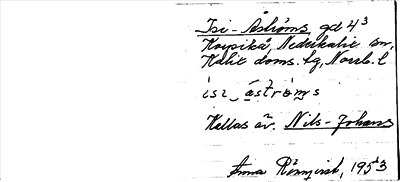 Isi-Åströms, gd 4³
Korpikå, Nederkalix sn,
Kalix doms. hg, Norrb. l
isi_åströms
Kallas äv. Nils-Johans
Anna Rönnqvist, 1953